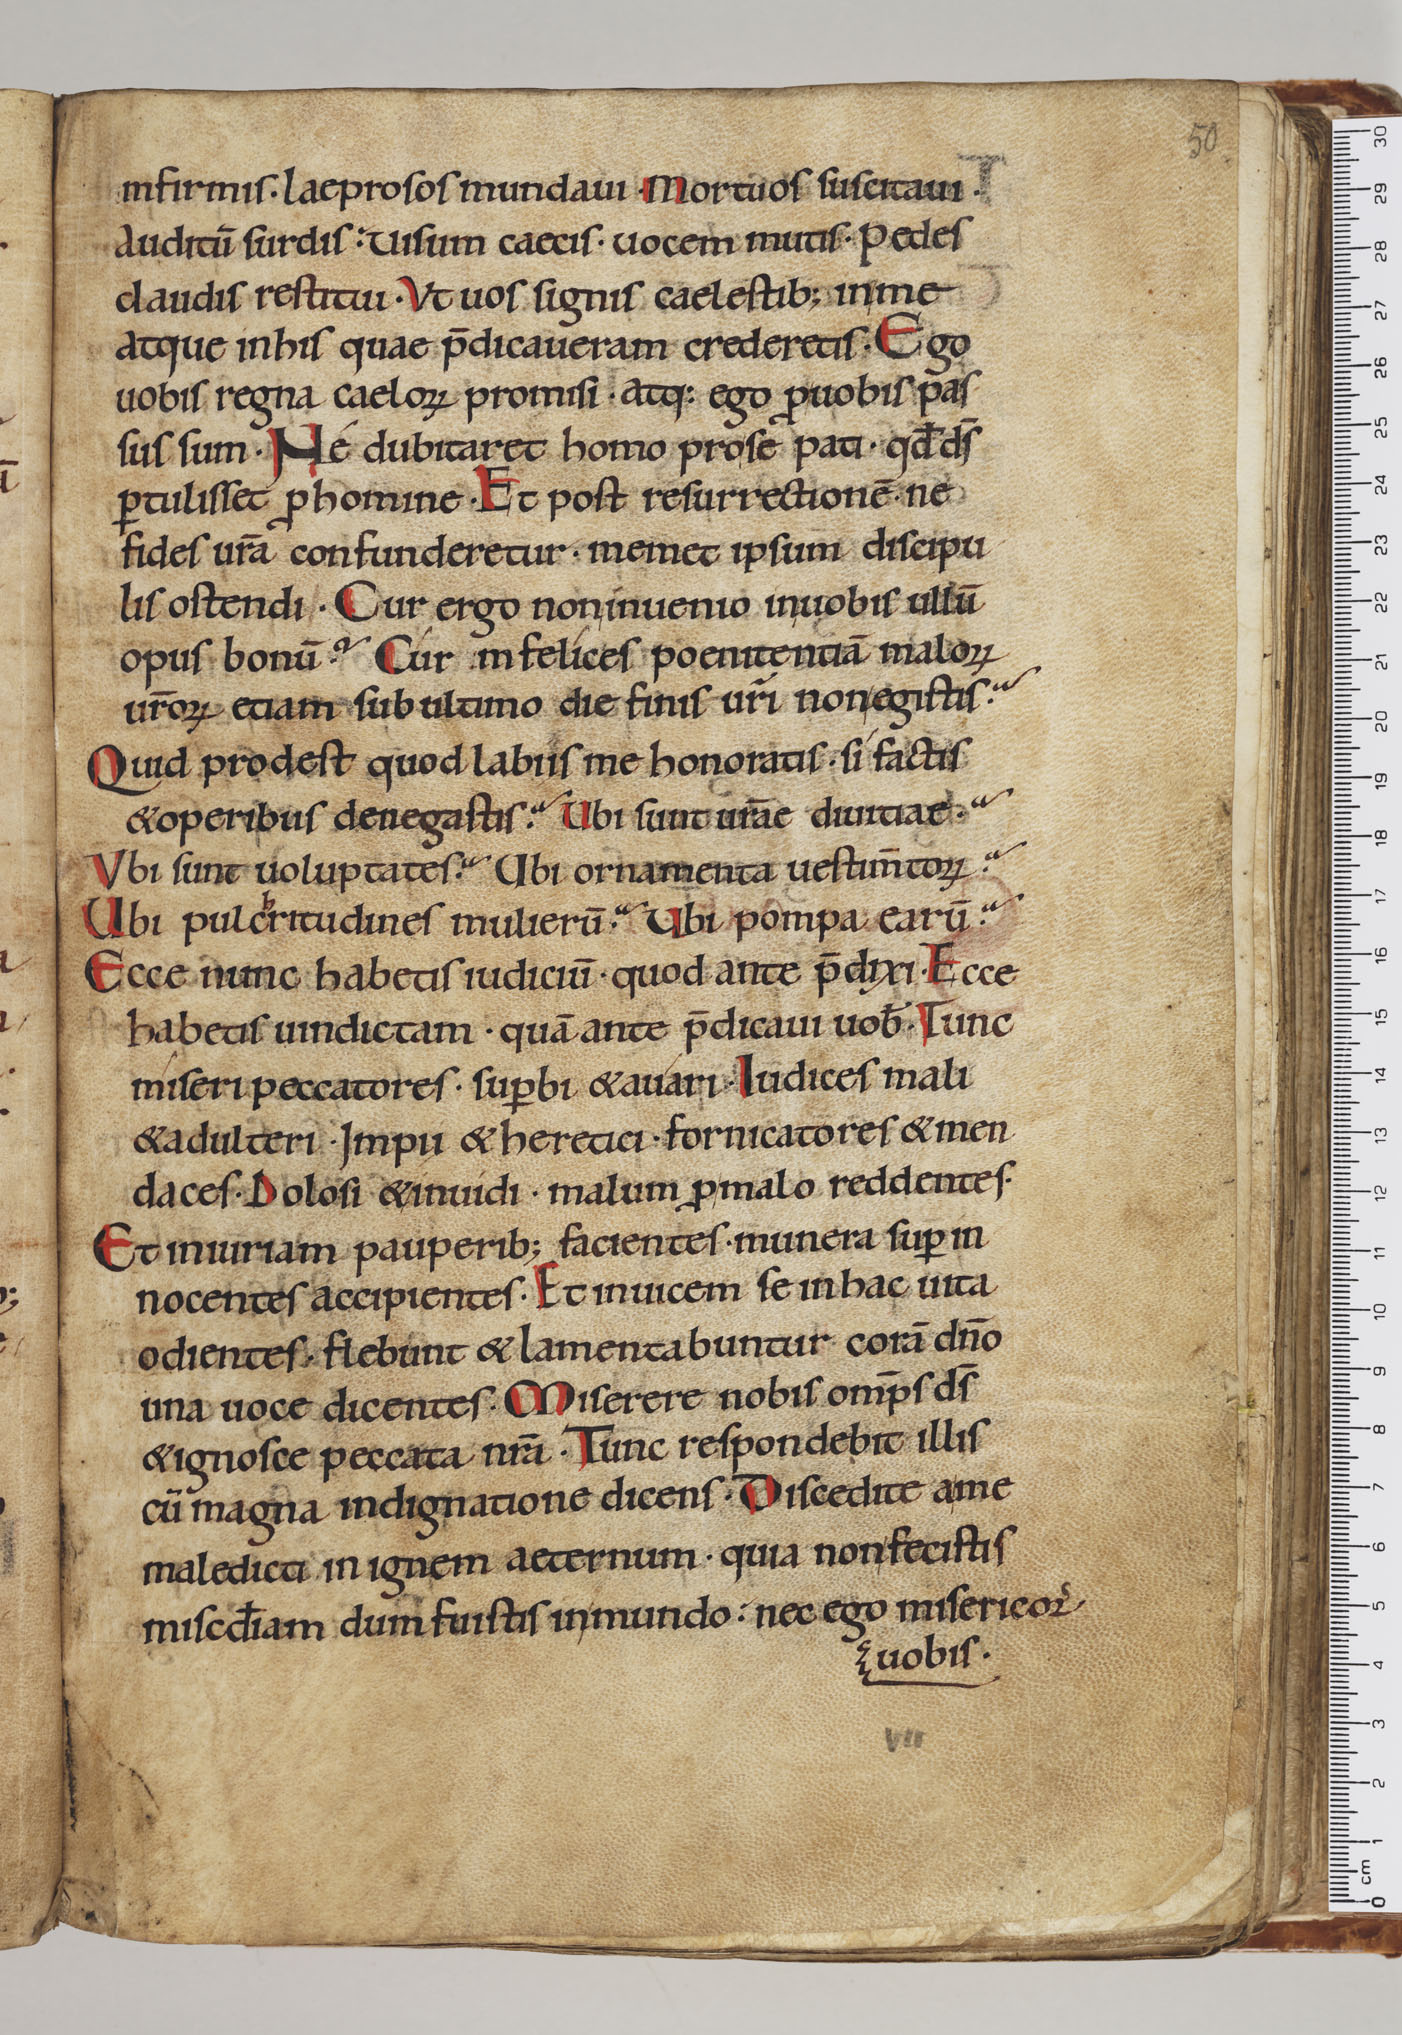 50
infirmis · laeprosos mundaui · Mortuos suscitaui ·
Auditū surdis : Uisum caecis · uocem mutis · Pedes
claudis restitui · Vt uos signis caelestib; inme
Atque inhis quae p̄dicaueram crederetis · Ego
uobis regna caeloꝝ promisi · atq: ego ꝓuobis pas
sus sum · Né dubitaret homo prose pati · qđ ds̄
ꝑtulisset ꝓhomine · Et post resurrectionē · ne
fides ur̄a confunderetur · memet ipsum discipu
lis ostendi · Cur ergo noninuenio inuobis ullū
opus bonū? Cur infelices poenitentiā maloꝝ
ur̄oꝝ etiam sub ultimo die finis ur̄i nonegistis?
Quid prodest quod labiis me honoratis · si factis
&operibus denegastis? Ubi sunt ur̄ae diuitiae?
Vbi sunt uoluptates? Ubi ornamenta uestim̄toꝝ?
Ubi pulchritudines mulierū? Ubi pompa earū?
Ecce nunc habetis iudiciū · quod ante p̄dixi · Ecce
habetis uindictam · quā ante p̄dicaui uob̄ · Tunc
miseri peccatores · suꝑbi &auari · Iudices mali
&adulteri · Impii &heretici · fornicatores &men
daces · Dolosi &inuidi · malum ꝓmalo reddentes ·
Et iniuriam pauperib; facientes · munera suꝑ in
nocentes accipientes · Et inuicem se inhac uita
odientes · flebunt & lamentabuntur corā dn̄o
una uoce dicentes · Miserere nobis omp̄s ds̄
&ignosce peccata nr̄a · Tunc respondebit illis
cū magna indignatione dicens · Discedite ame
maledicti in ignem aeternum · quia nonfecistis
miscđiam dum fuistis inmundo : nec ego misericor
uobis ·
VII